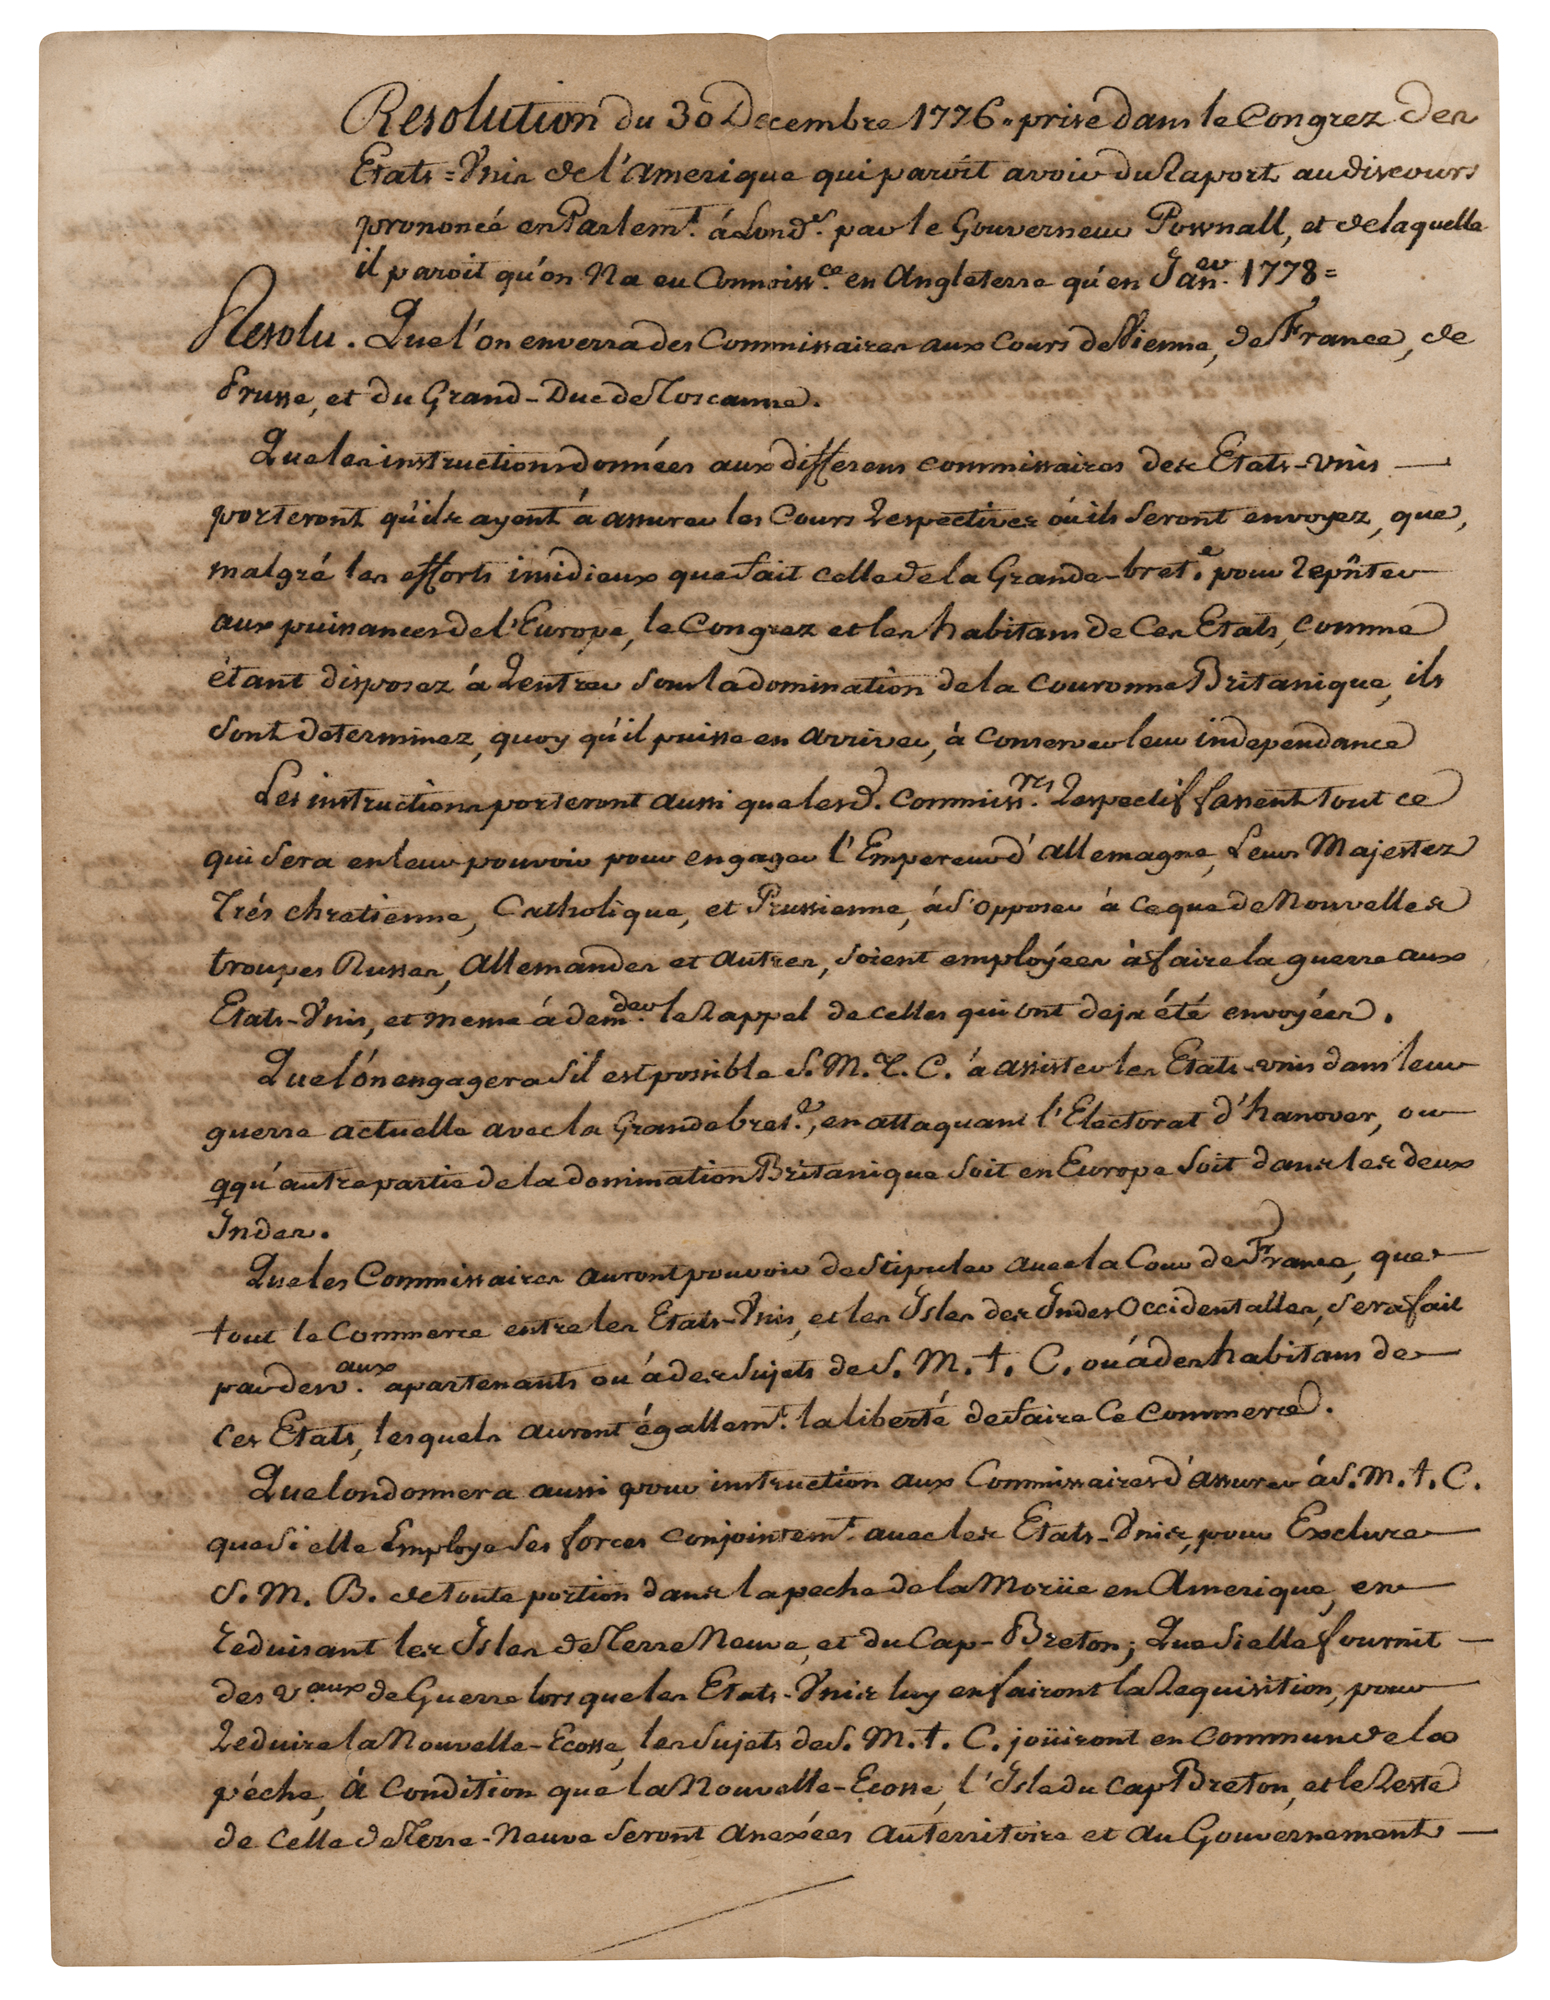 Resolution du 30 Decembre 1776. prise dans le Congrez des
Etats=Vnis de l'Amerique qui paroît avoir du raport au discours
prononcé en Parlemt. á Londs. par le Gouverneur Pownall, et de laquelle
il paroit qu'on Na eu Connoissce. en Angleterre qu'en Janer. 1778=
Resolu. Que l'on enverra des Commissaires aux Cours de Vienne, de France, de
Prusse, et du Grand-Duc de Toscanne.
Que les instructions données aux differens commissaires des Etats-vnis —
porteront qu'ils ayent á assurer les Cours respectives oú ils seront envoyez, que,
malgré les efforts insidieux que fait celle de la Grande-brete. pour repñter
aux puissances de l'Europe, le Congrez et les habitans de Ces Etats, comme
étant disposez á rentrer sous la domination de la couronne Britanique, ils
sont determinez, quoy qu'il puisse en arriver, á conserver leur independance
Les instructions porteront aussi que lesd. commissres. respectif fassent tout ce
qui sera en leur pouvoir pour engager l'Empereur d'allemagne, Leurs Majestez
Trés chretienne, Catholique, et Prussienne, á s'opposer á ce que de Nouvelles
troupes Russes, Allemandes et autres, soient employées á faire la guerre aux
Etats-Vnis, et meme á demder. le rappel de celles qui ont deja été envoyées.
Que l'on engagera s'il est possible S. M. T. C. á assister les Etats-vnis dans leur
guerre actuelle avec la Grande brete., en attaquant l'Electorat d'hanover, ou
qqu'autre partie de la domination Britanique soit en Europe soit dans les deux
Indes.
Que les Commissaires auront pouvoir de stipuler avec la Cour de France, que —
tout le Commerce entre les Etats-Vnis, et les Isles des Indes Occidentalles, sera fait
par des vaux. apartenants ou á des sujets de S. M. t. C. ou á des habitans de —
ces Etats, lesquels auront égallemt. la liberté de faire Ce commerce.
Que lon donnera aussi pour instruction aux Commissaires d'assurer á S. M. t. C.
que si elle Employe ses forces conjointemt. avec les Etats-Vnis, pour Exclure —
S. M. B. de toute portion dans la peche de la Morüe en Amerique, en —
reduisant les Isles de Terre Neuve, et du Cap-Breton; Que si elle fournit —
des vaux. de Guerre lors que les Etats-Vnis luy en fairont la requisition, pour —
reduire la Nouvelle-Ecosse, les sujets de S. M. t. C. joüiront en commun de la
péche, á Condition que la Nouvelle-Ecosse, l'Isle du Cap Breton, et le reste
de celle de Terre-Neuve seront anexées au territoire et au Gouvernement —